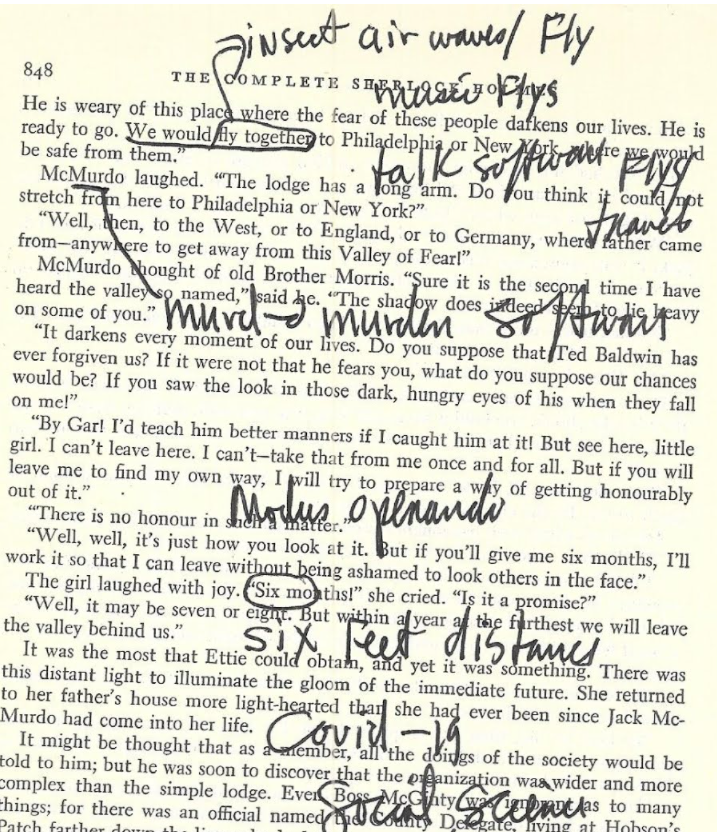 insect air waves/ Fly
848
THE COMPLETE SHERLOCK HOLMES
music Flys
He is weary of this place where the fear of these people darkens our lives. He is
ready to go. We would fly together to Philadelphia or New York, where we would
be safe from them.”
talk software Flys
McMurdo laughed. “The lodge has a long arm. Do you think it could not
stretch from here to Philadelphia or New York?”
travels
“Well, then, to the West, or to England, or to Germany, where father came
from—anywhere to get away from this Valley of Fear!”
McMurdo thought of old Brother Morris. “Sure it is the second time I have
heard the valley so named,” said he. “The shadow does indeed seem to lie heavy
on some of you.”
murd-o murder software
“It darkens every moment of our lives. Do you suppose that Ted Baldwin has
ever forgiven us? If it were not that he fears you, what do you suppose our chances
would be? If you saw the look in those dark, hungry eyes of his when they fall
on me!”
“By Gar! I’d teach him better manners if I caught him at it! But see here, little
girl. I can’t leave here. I can’t—take that from me once and for all. But if you will
leave me to find my own way, I will try to prepare a way of getting honourably
out of it.”
Modus operando
“There is no honour in such a matter.”
“Well, well, it’s just how you look at it. But if you’ll give me six months, I’ll
work it so that I can leave without being ashamed to look others in the face.”
The girl laughed with joy. “Six months!” she cried. “Is it a promise?”
“Well, it may be seven or eight. But within a year at the furthest we will leave
the valley behind us.”
six Feet distance
It was the most that Ettie could obtain, and yet it was something. There was
this distant light to illuminate the gloom of the immediate future. She returned
to her father’s house more light-hearted than she had ever been since Jack Mc-
Murdo had come into her life.
Covid-19
It might be thought that as a member, all the doings of the society would be
told to him; but he was soon to discover that the organization was wider and more
complex than the simple lodge. Even Boss McGinty was ignorant as to many
Social Science
things; for there was an official named the County Delegate, living at Hobson’s
Patch farther down the line